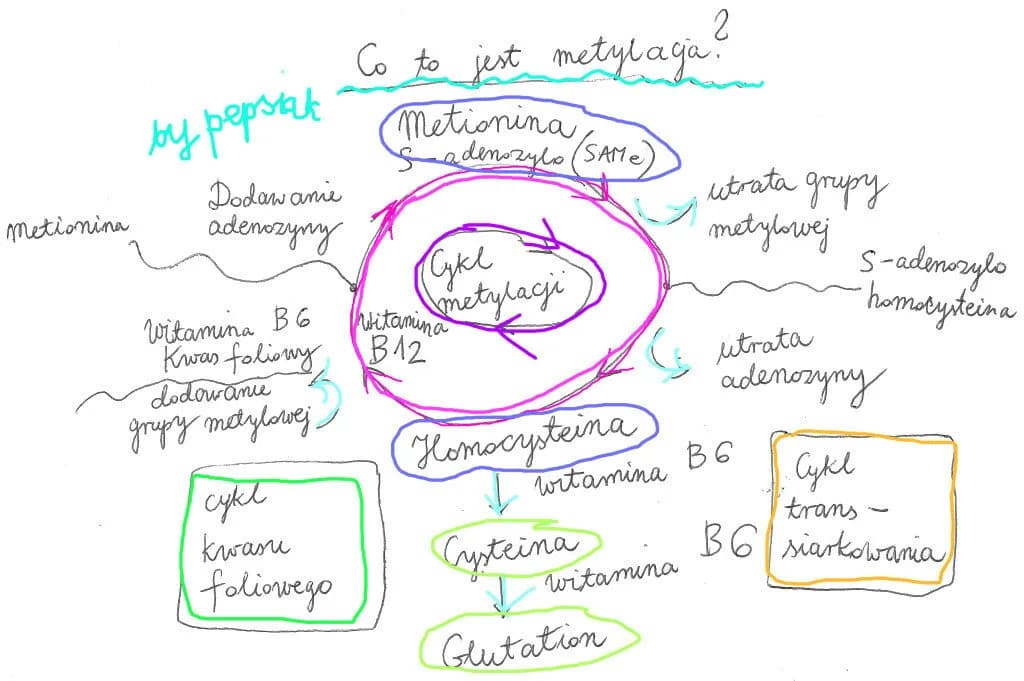 Co to jest metylacja?
by pepsiak
Metionina
S-adenozylo (SAMe)
Dodawanie
adenozyny
metionina
utrata grupy
metylowej
Cykl
metylacji
S-adenozylo
homocysteina
Witamina B6
Kwas foliowy
witamina
B12
dodowanie
grupy metylowej
utrata
adenozyny
Homocysteina
witamina B6
cykl
kwasu
foliowego
Cykl
trans-
siarkowania
Cysteina
witamina B6
Glutation